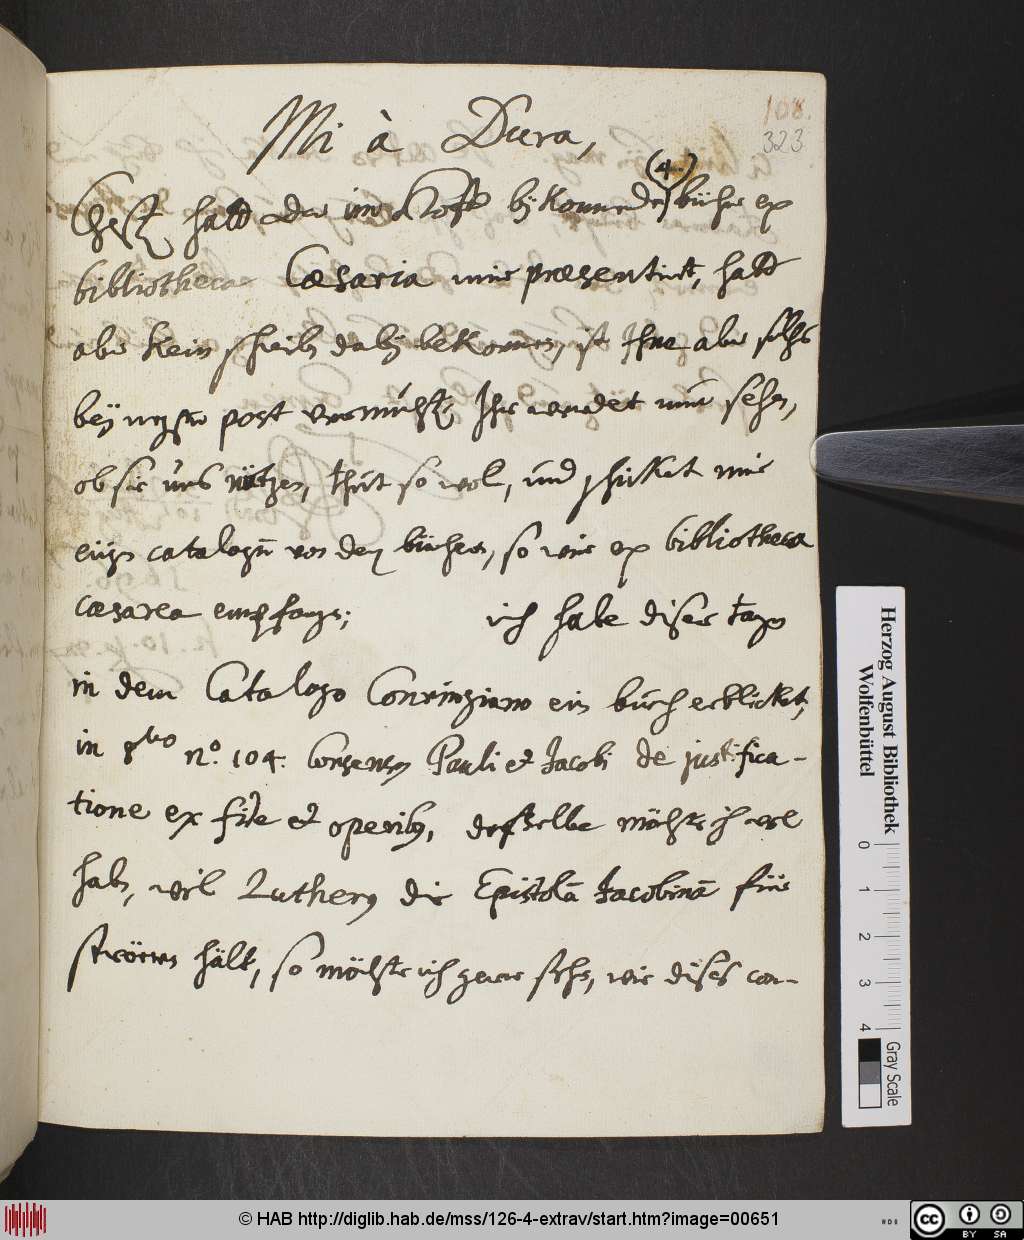 Mi à Dura,
108.
323
(4.)
hatt der im bücher ex
bibliotheca Cæsaria mir præsentirt, hatt
aber kein schreiben dabey bekommen, ist Ihne aber solches
bey post Ihr werdet nun sehen,
ob sie uns nützen, thut so wol, und schikket mir
catalogū von den büchern, so wir ex bibliotheca
cæsarea empfangen; ich habe diser tagen
in dem Catalogo Conringiano ein buch erblicket,
in 8vo no. 104. Consensus Pauli et Jacobi de justifica-
tione ex fide et operibus, dasselbe möchte ich wol
haben, weil Lutherus die Epistolā Jacobinā für
ströern hält, so möchte ich gerne sehen, wie dises con-
Herzog August Bibliothek
Wolfenbüttel
0 1 2 3 4
Gray Scale
© HAB http://diglib.hab.de/mss/126-4-extrav/start.htm?image=00651
cc BY SA